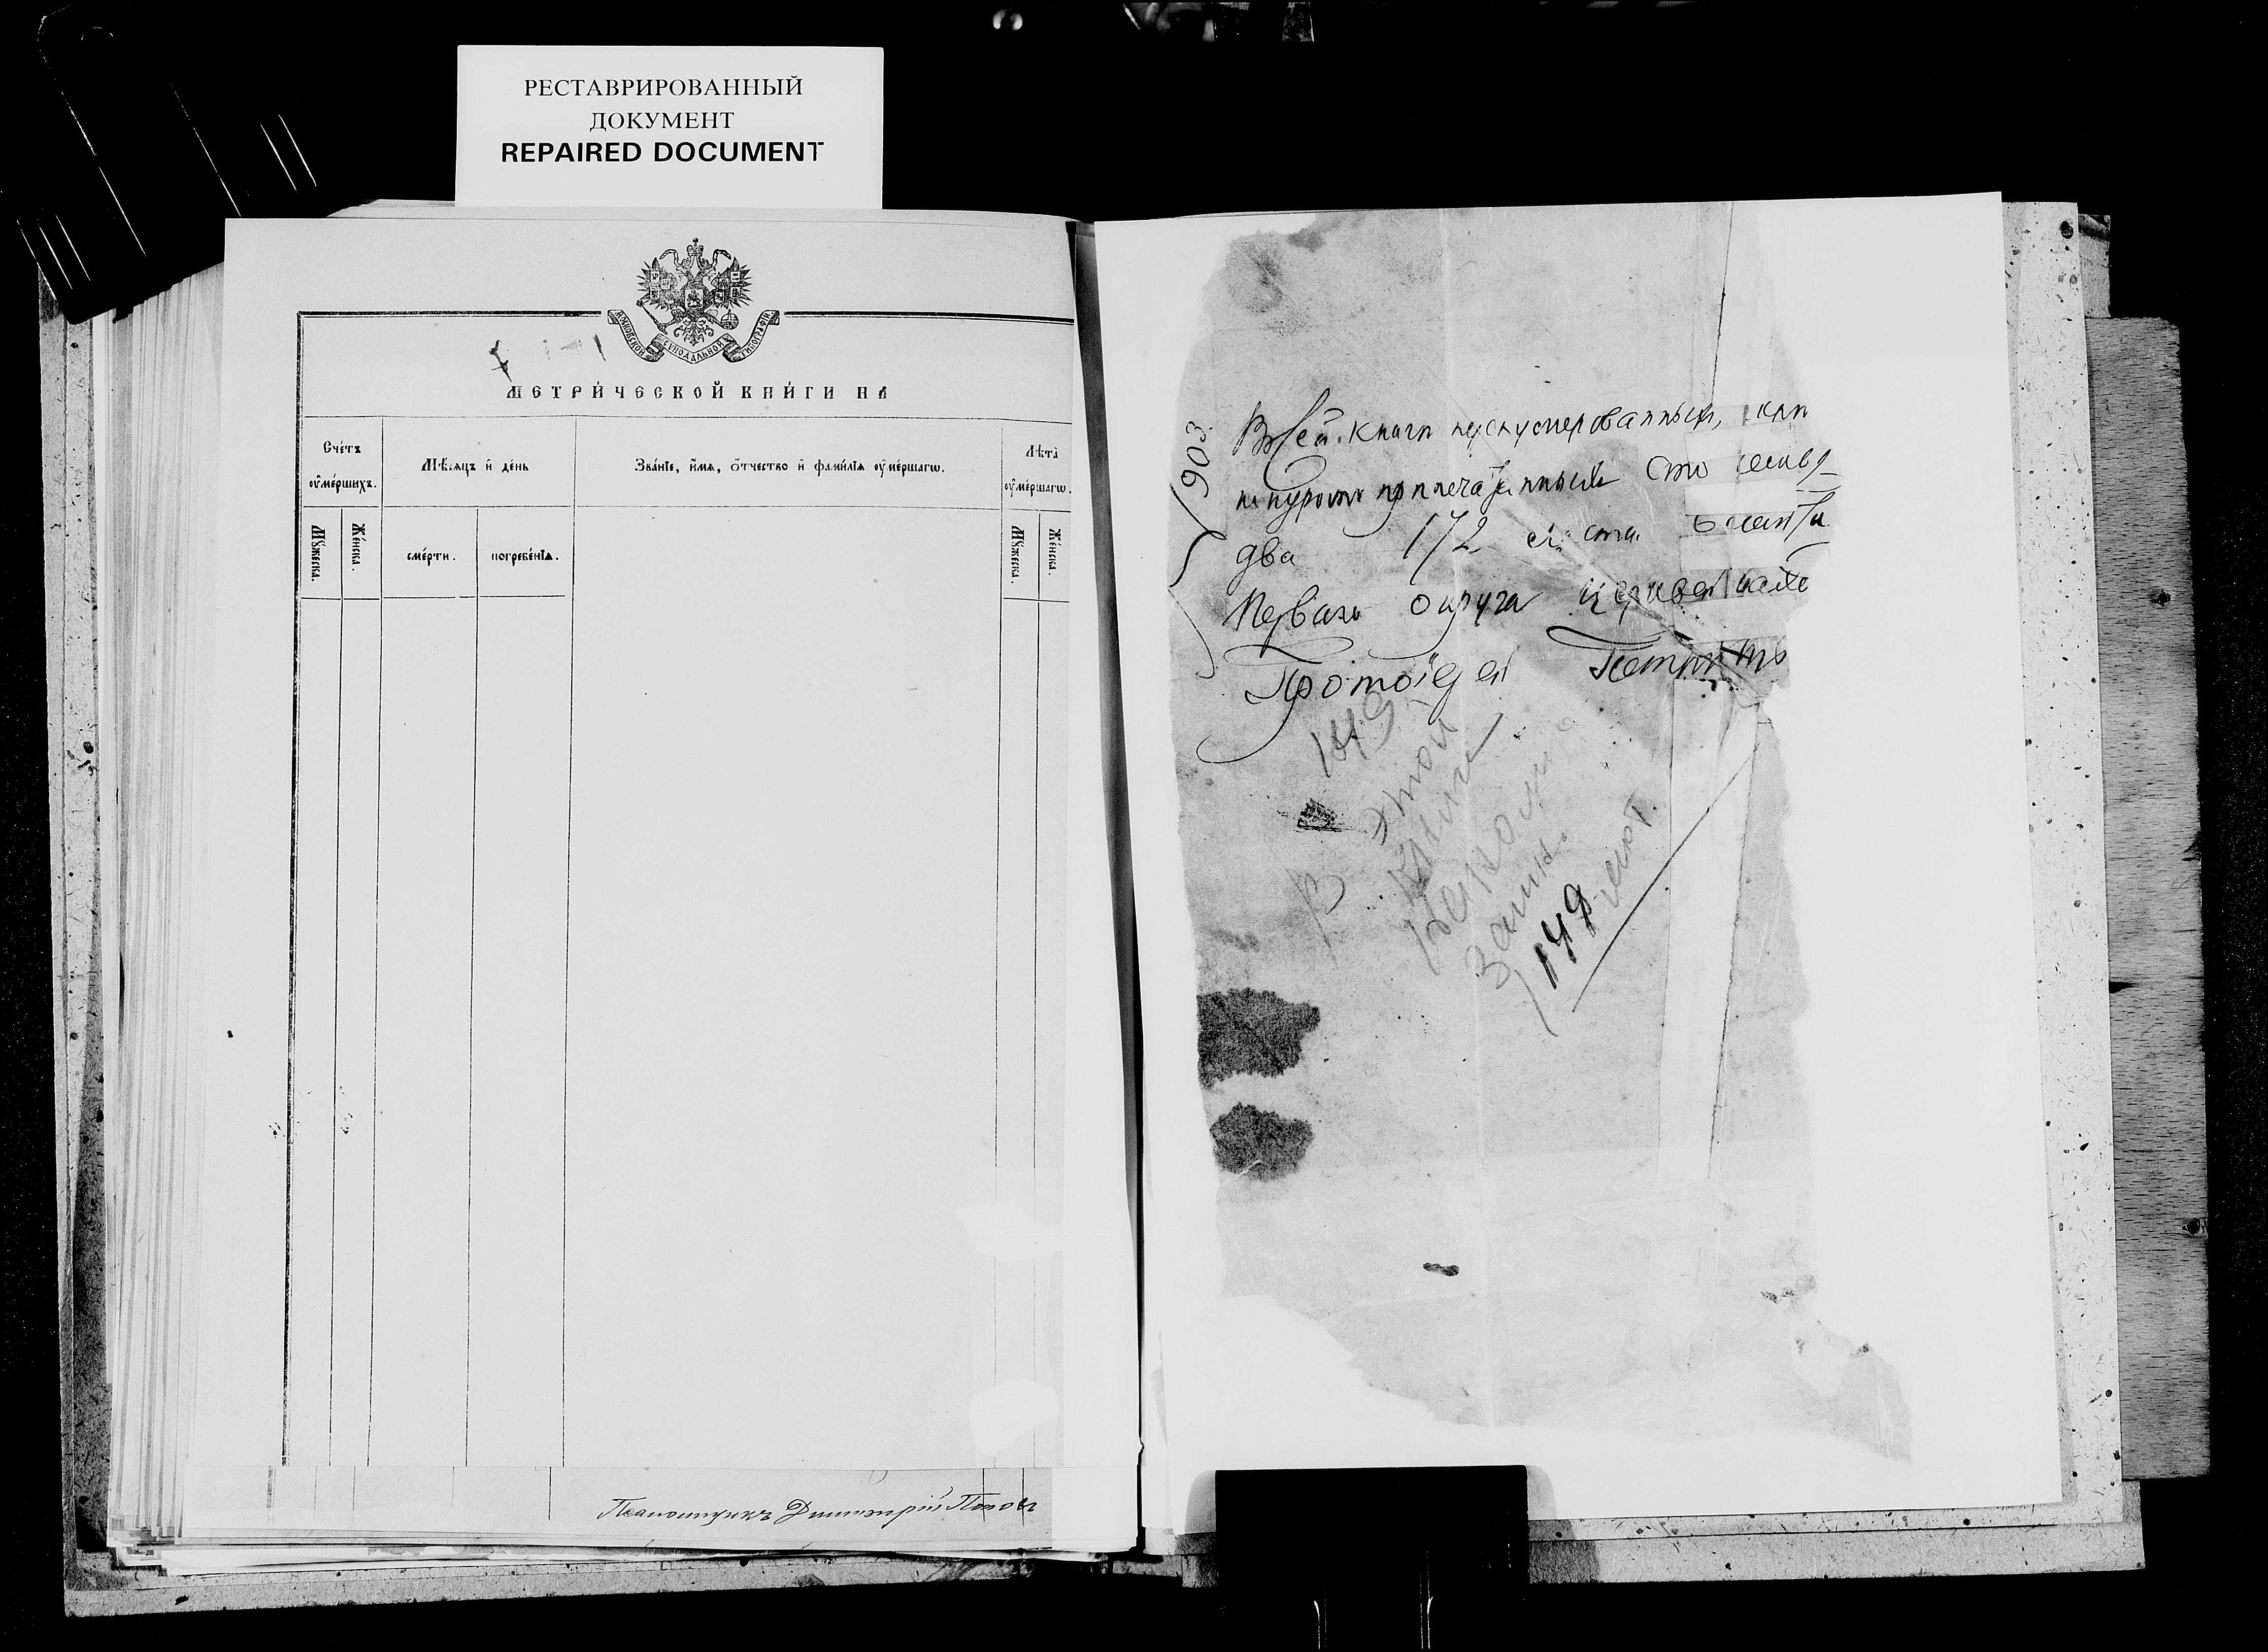 РЕСТАВРИРОВАННЫЙ
ДОКУМЕНТ
REPAIRED DOCUMENT
МОСКОВСКОЙ СѴНОДАЛЬНОЙ ТИПОГРАФІИ
МЕТРИ́ЧЕСКОЙ КНИ́ГИ НА
Сче́тъ оу҆ме́ршихъ.
Мѣ́сяцъ и҆ де́нь
Зва́нїе, и҆́мѧ, ѻ҆́тчество и҆ фами́лїѧ оу҆ме́ршагѡ.
Лѣ́та̀ оу҆ме́ршагѡ.
Мꙋ́жеска.
Же́нска.
сме́рти.
погребе́нїѧ.
Мꙋ́жеска.
Же́нска.
Псаломщикъ Димитрій Поповъ
1903.
В сей книги пронумерованныхъ,
шнуромъ припечатанныхъ сто семьд
два 172 листа
Перваго округа
Протоіерей
149
В этой
книги
Законч.
149 лист.